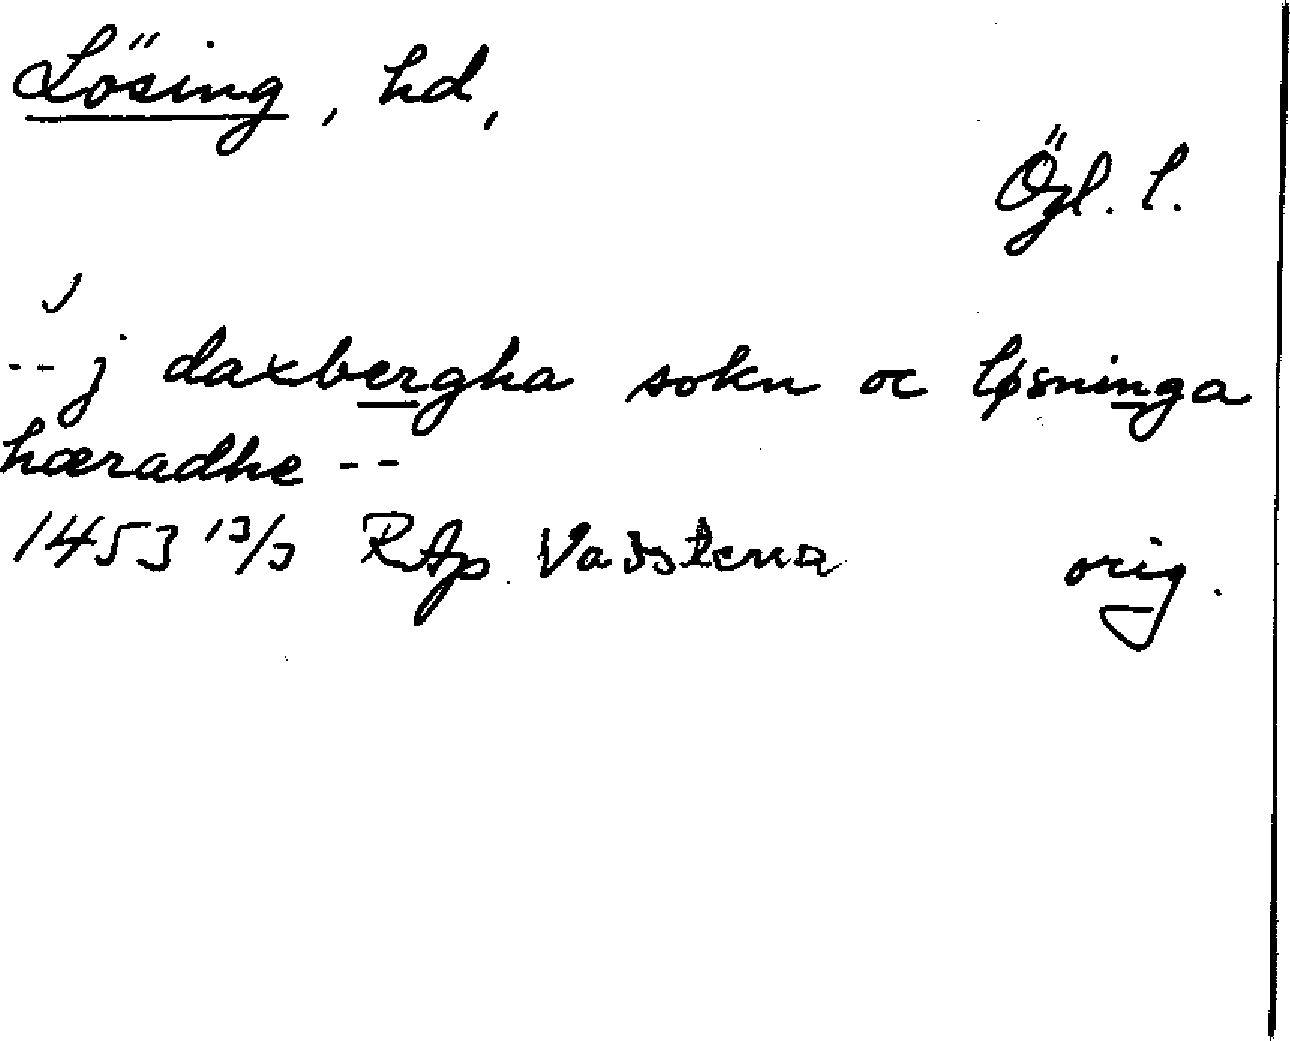 Lösing, hd,
Ögl. l.
-- j daxbergha sokn oc løsninga
hæradhe --
1453 13/3 RAp Vadstena orig.